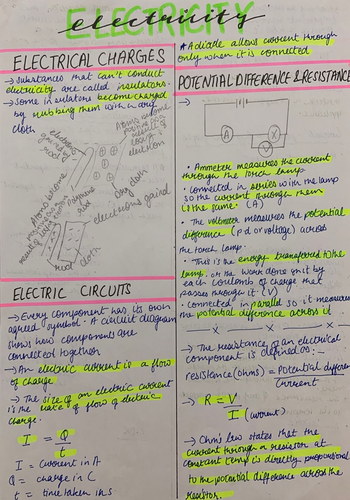 ELECTRICITY
electricity
ELECTRICAL CHARGES
→ Substances that can't conduct
electricity are called insulators.
→ Some insulators become charged
by rubbing them with a dry
cloth
electrons
gained
rod
dry cloth
electrons gained
rod
cloth
ELECTRIC CIRCUITS
→ Every component has its own
agreed symbol. A circuit diagram
shows how component are
connected together
→ An electric current is a flow
of charge
→ The size of an electric current
is the rate of flow of electric
charge.
I = Q
t
I = Current in A
Q = charge in C
t = time taken in s
* A diode allows current through
only when it is connected
POTENTIAL DIFFERENCE & RESISTANCE
→
A
X
V
• Ammeter measures the current
through the torch lamp
• connected in series with the lamp
so the current through them
is the same. (A)
• The voltmeter measures the potential
difference (p.d or voltage) across
the torch lamp.
• This is the energy transferred to the
lamp, or the work done on it by
each coulomb of charge that
passes through it (V)
• connected in parallel so it measures
the potential difference across it
x x x
→ The resistance of an electrical
component is defined as:-
resistance (ohms) = Potential difference
Current
→ R = V
I (current)
→ Ohm's law states that the
current through a resistor at
constant temp is directly proportional
to the potential difference across the
resistor.